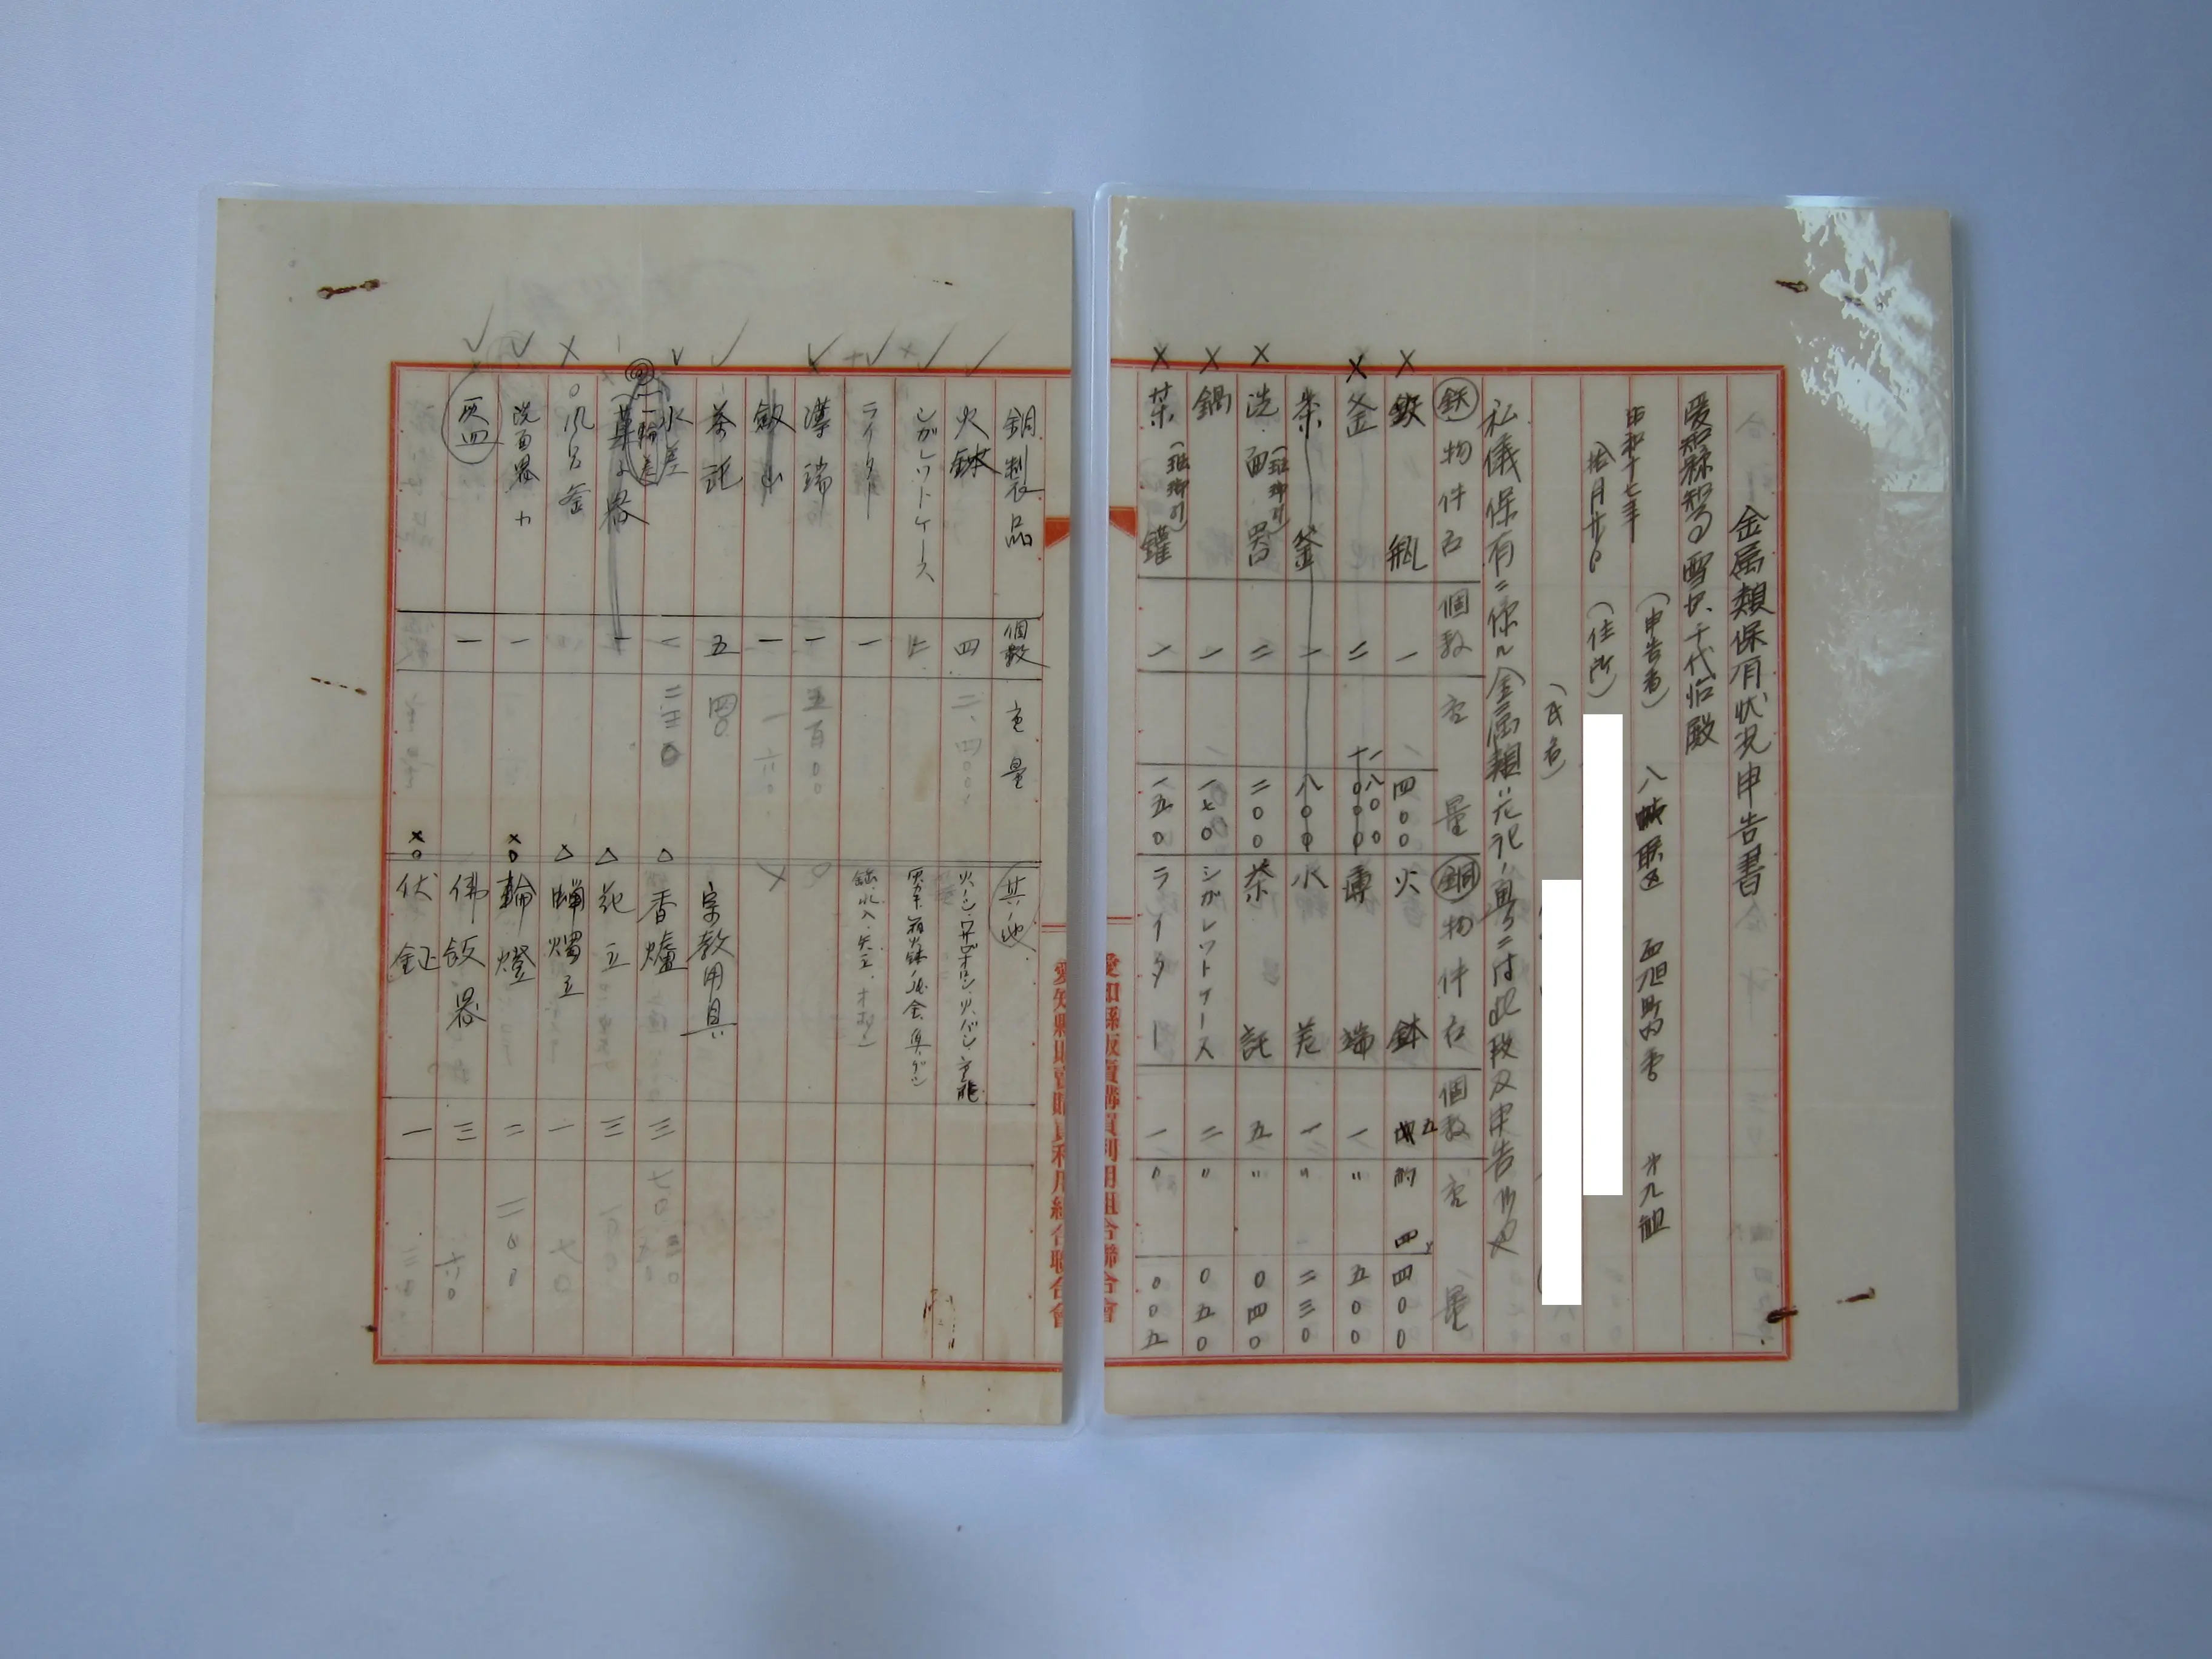 金属類保有状況申告書
愛知縣知事 雪沢千代治殿
昭和十七年
拾月廿日
(申告者) 八幡聯区 西旭町内会 第九組
(住所)
(氏名)
私儀保有ニ係ル金属類ハ左記ノ通リニ付此段及申告候也
鉄 物件名 個数 重量 銅 物件名 個数 重量
鉄瓶 一 一四〇〇 火鉢 五 約 四、四〇〇
釜 二 薄端 一 〃 五〇〇
茶釜 一 八〇〇 水差 一 〃 二三〇
洗面器 (琺瑯引) 二 二〇〇 茶託 五 〃 〇四〇
鍋 一 一七〇 シガレットケース 二 〃 〇五〇
茶鑵 (琺瑯引) 一 一五〇 ライター 一 〃 〇〇五
愛知縣販賣購買利用組合聯合會
愛知縣販賣購買利用組合聯合會
銅製品 個数 重量
火鉢 四 二、四〇〇
シガレットケース 二
ライター 一
薄端 一 五百〇〇
剣山 一 一六〇
茶託 五 四〇
水差 一 二三〇
一輪差
菓子器 一
風呂釜
洗面器 一
灰皿 一
其ノ他
宗教用具
△ 香爐 三
△ 花立 三
△ 蝋燭立 一 七〇
×〇 輪燈 二 二〇〇
佛飯器 三 六〇
×〇 伏鉦 一